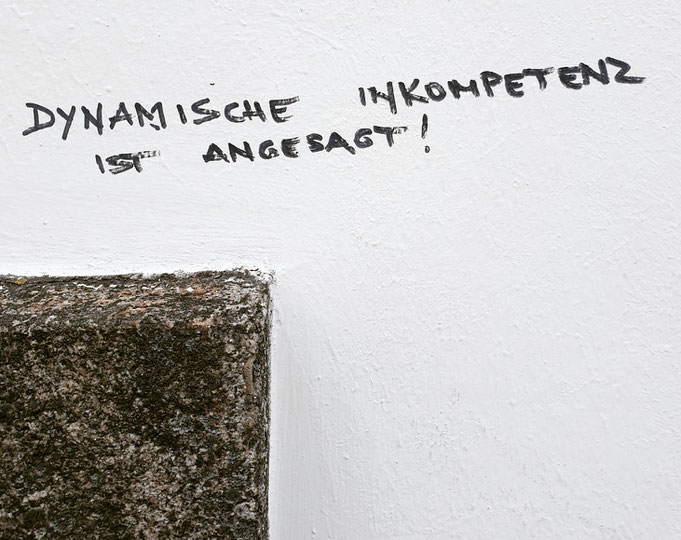 DYNAMISCHE INKOMPETENZ
IST ANGESAGT!